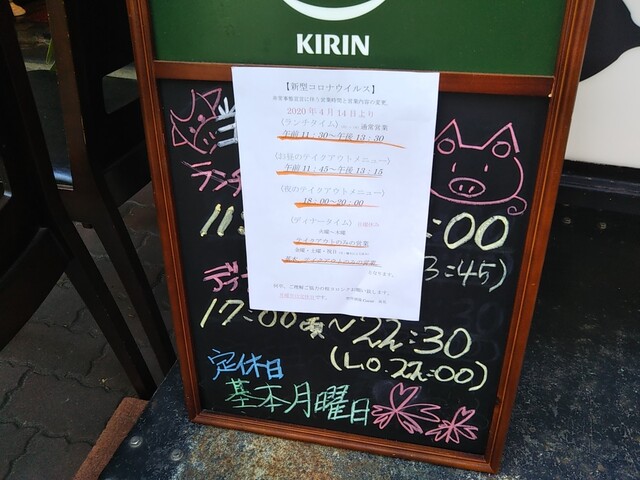 KIRIN
【新型コロナウイルス】
2020年4月14日より
(ランチタイム) 通常営業
午前11:30~午後13:30
(お昼のテイクアウトメニュー)
午前11:45~午後13:15
(夜のテイクアウトメニュー)
18:00~20:00
(ディナータイム)
火曜~木曜
テイクアウトのみの営業
金曜・土曜・祝日
基本、テイクアウトのみの営業
となります。
ラン
11:
:00
3:45)
17:00頃~22:30
(L.O.22:00)
定休日
基本月曜日